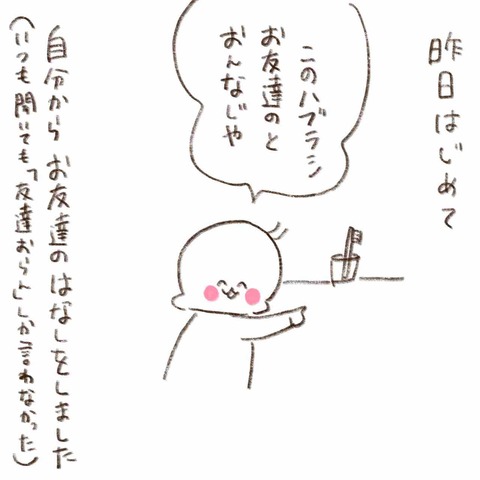 昨日はじめて
このハブラシ
お友達のと
おんなじや
自分からお友達のはなしをしました
（いつも聞いても「友達おらん」しか言わなかった）